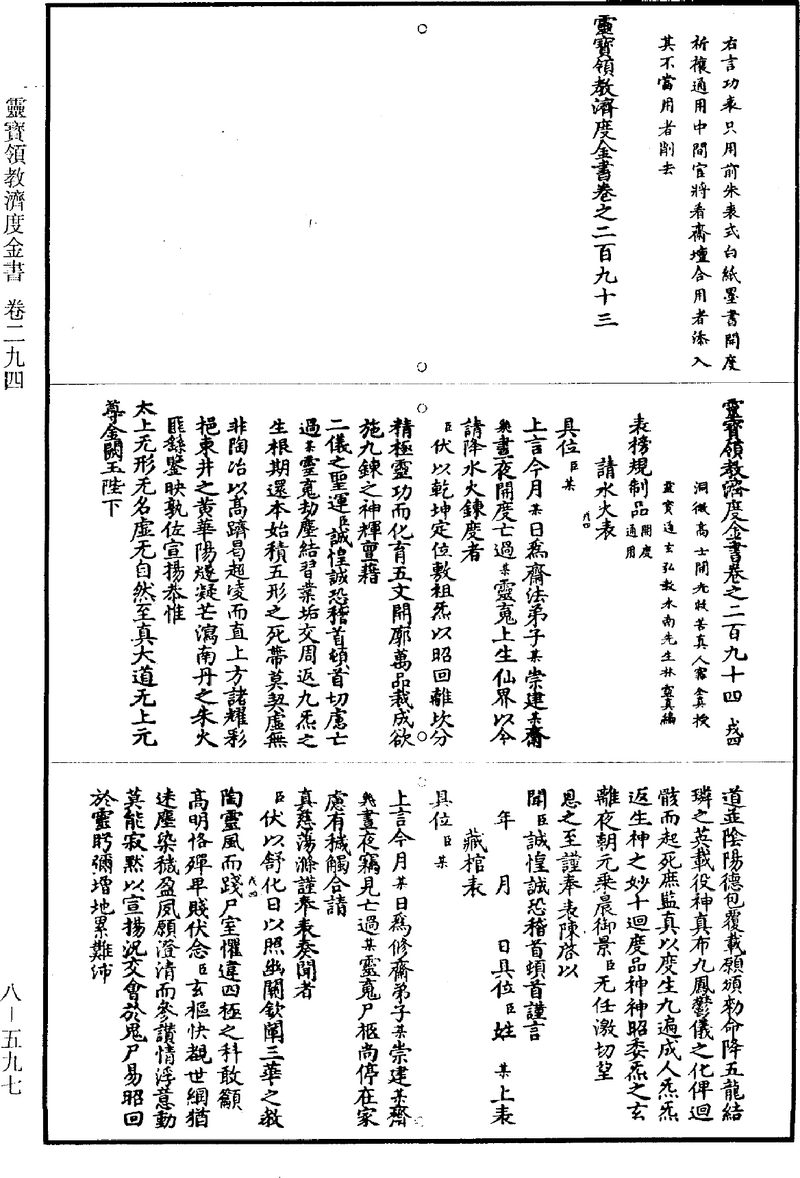 靈寶領教濟度金書 卷二九四
八－五九七
右言功表只用前朱表式白紙墨書開度
祈禳通用中間官將看齋壇合用者添入
其不當用者削去
靈寶領教濟度金書卷之二百九十三
靈寶領教濟度金書卷之二百九十四 戎四
洞微高士開光救苦真人甯全真授
靈寶通玄弘教水南先生林靈真編
表榜規制品 開度通用
請水火表
具位臣某
上言今月某日為齋法弟子某崇建某齋
幾晝夜開度亡過某靈魂上生仙界以今
請降水火鍊度者
臣伏以乾坤定位敷祖炁以昭回離坎分
精極靈功而化育五文開廓萬品裁成欲
施九鍊之神輝亶藉
二儀之聖運臣誠惶誠恐稽首頓首切慮亡
過某靈魂劫塵結習業垢交周返九炁之
生根期還本始積五形之死帶莫契虛無
非陶冶以高躋曷超凌而直上方諸耀彩
挹東井之黃華陽燧凝芒瀉南丹之朱火
匪繇鑒映孰佐宣揚恭惟
太上无形无名虛无自然至真大道无上元
尊金闕玉陛下
道並陰陽德包覆載願頒勑命降五龍結
璘之英載役神真布九鳳鬱儀之化俾迴
骸而起死庶監真以度生九遍成人炁炁
返生神之妙十迴度品神神昭委炁之玄
離夜朝元乘晨御景臣无任激切望
恩之至謹奉表陳啓以
聞臣誠惶誠恐稽首頓首謹言
年 月 日具位臣姓 某上表
藏棺表
具位臣某
上言今月某日為修齋弟子某崇建某齋
幾晝夜竊見亡過某靈魂尸柩尚停在家
慮有穢觸合請
真慈蕩滌謹奉表奏聞者
臣伏以舒化日以照幽關欽闡三華之教
陶靈風而踐尸室懼違四極之科敢籲
高明恪殫卑賤伏念臣玄樞快覩世網猶
迷塵染穢盈夙願澄清而參讚情浮意動
莫能寂默以宣揚況交會於鬼尸易昭回
於靈眄彌增地累難沛